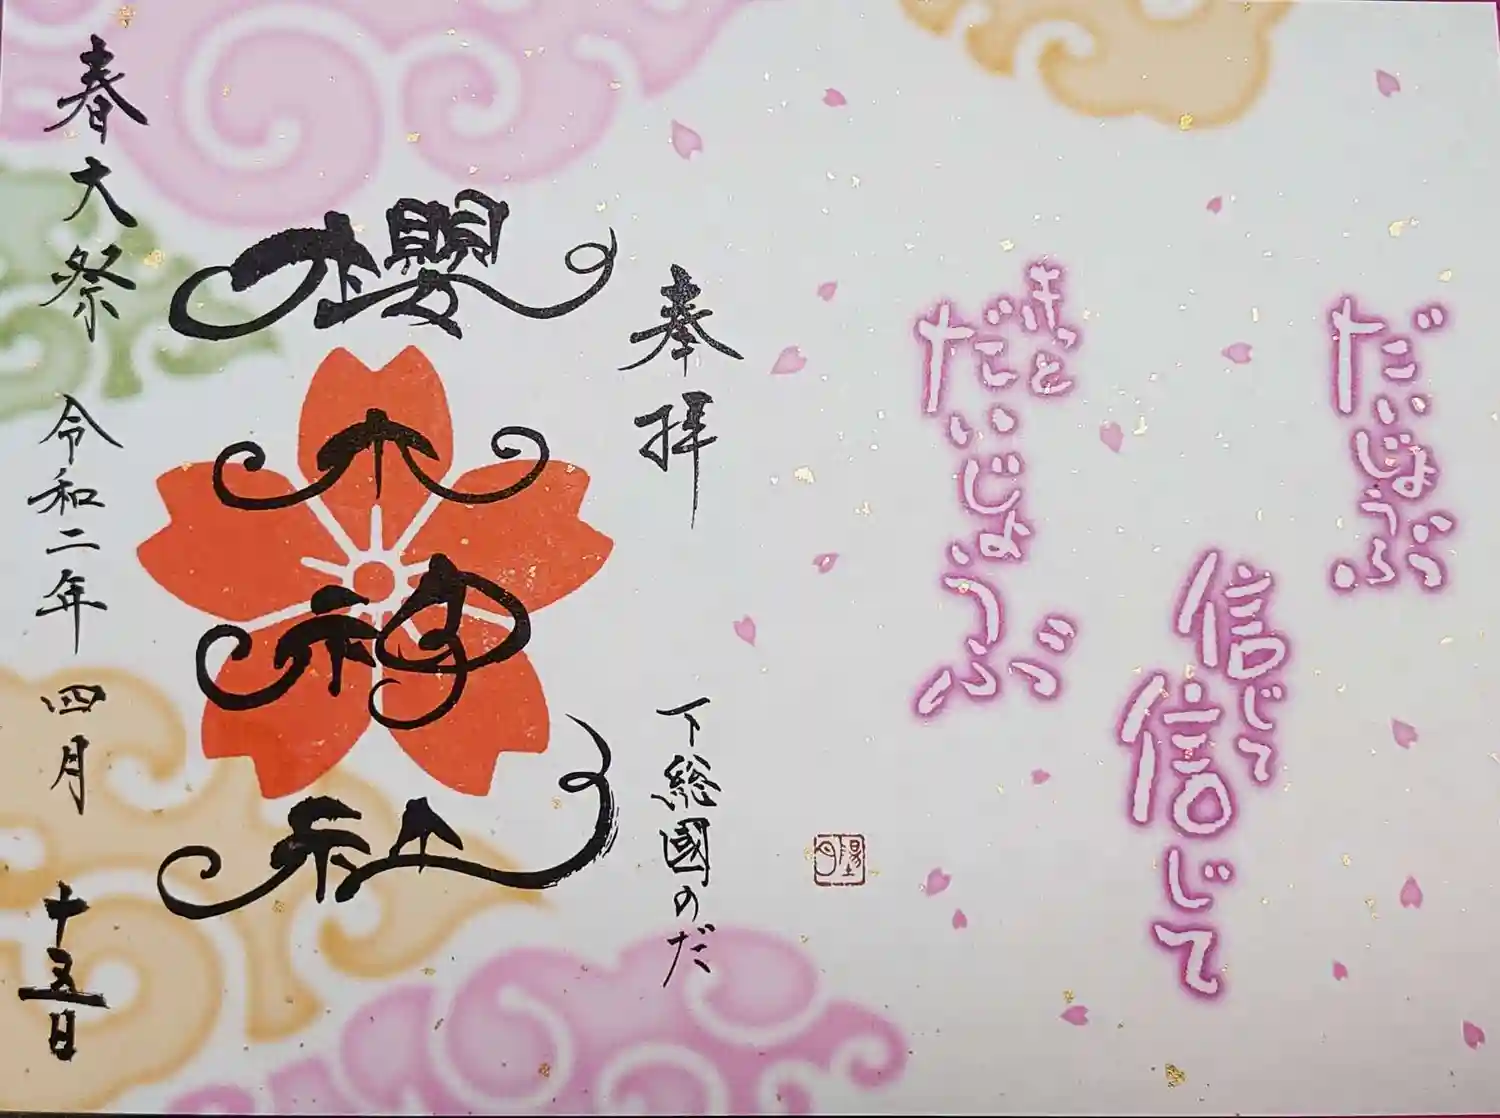 だいじょうぶ
信じて
信じて
きっと
だいじょうぶ
奉拝
下総國のだ
櫻木神社
春大祭 令和二年 四月 十五日